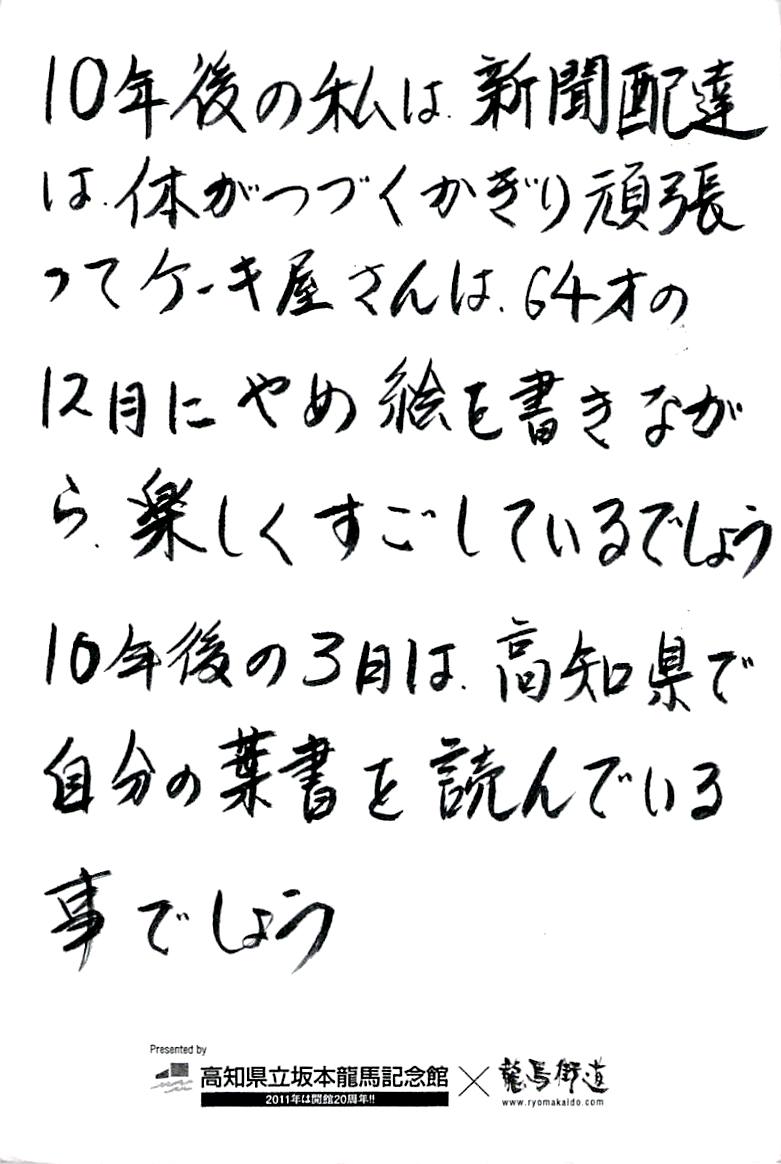 10年後の私は、新聞配達
は、体がつづくかぎり頑張
ってケーキ屋さんは、64才の
12月にやめ絵を書きなが
ら、楽しくすごしているでしょう
10年後の3月は、高知県で
自分の葉書を読んでいる
事でしょう
Presented by
高知県立坂本龍馬記念館
2011年は開館20周年!!
×
龍馬街道
www.ryomakaido.com